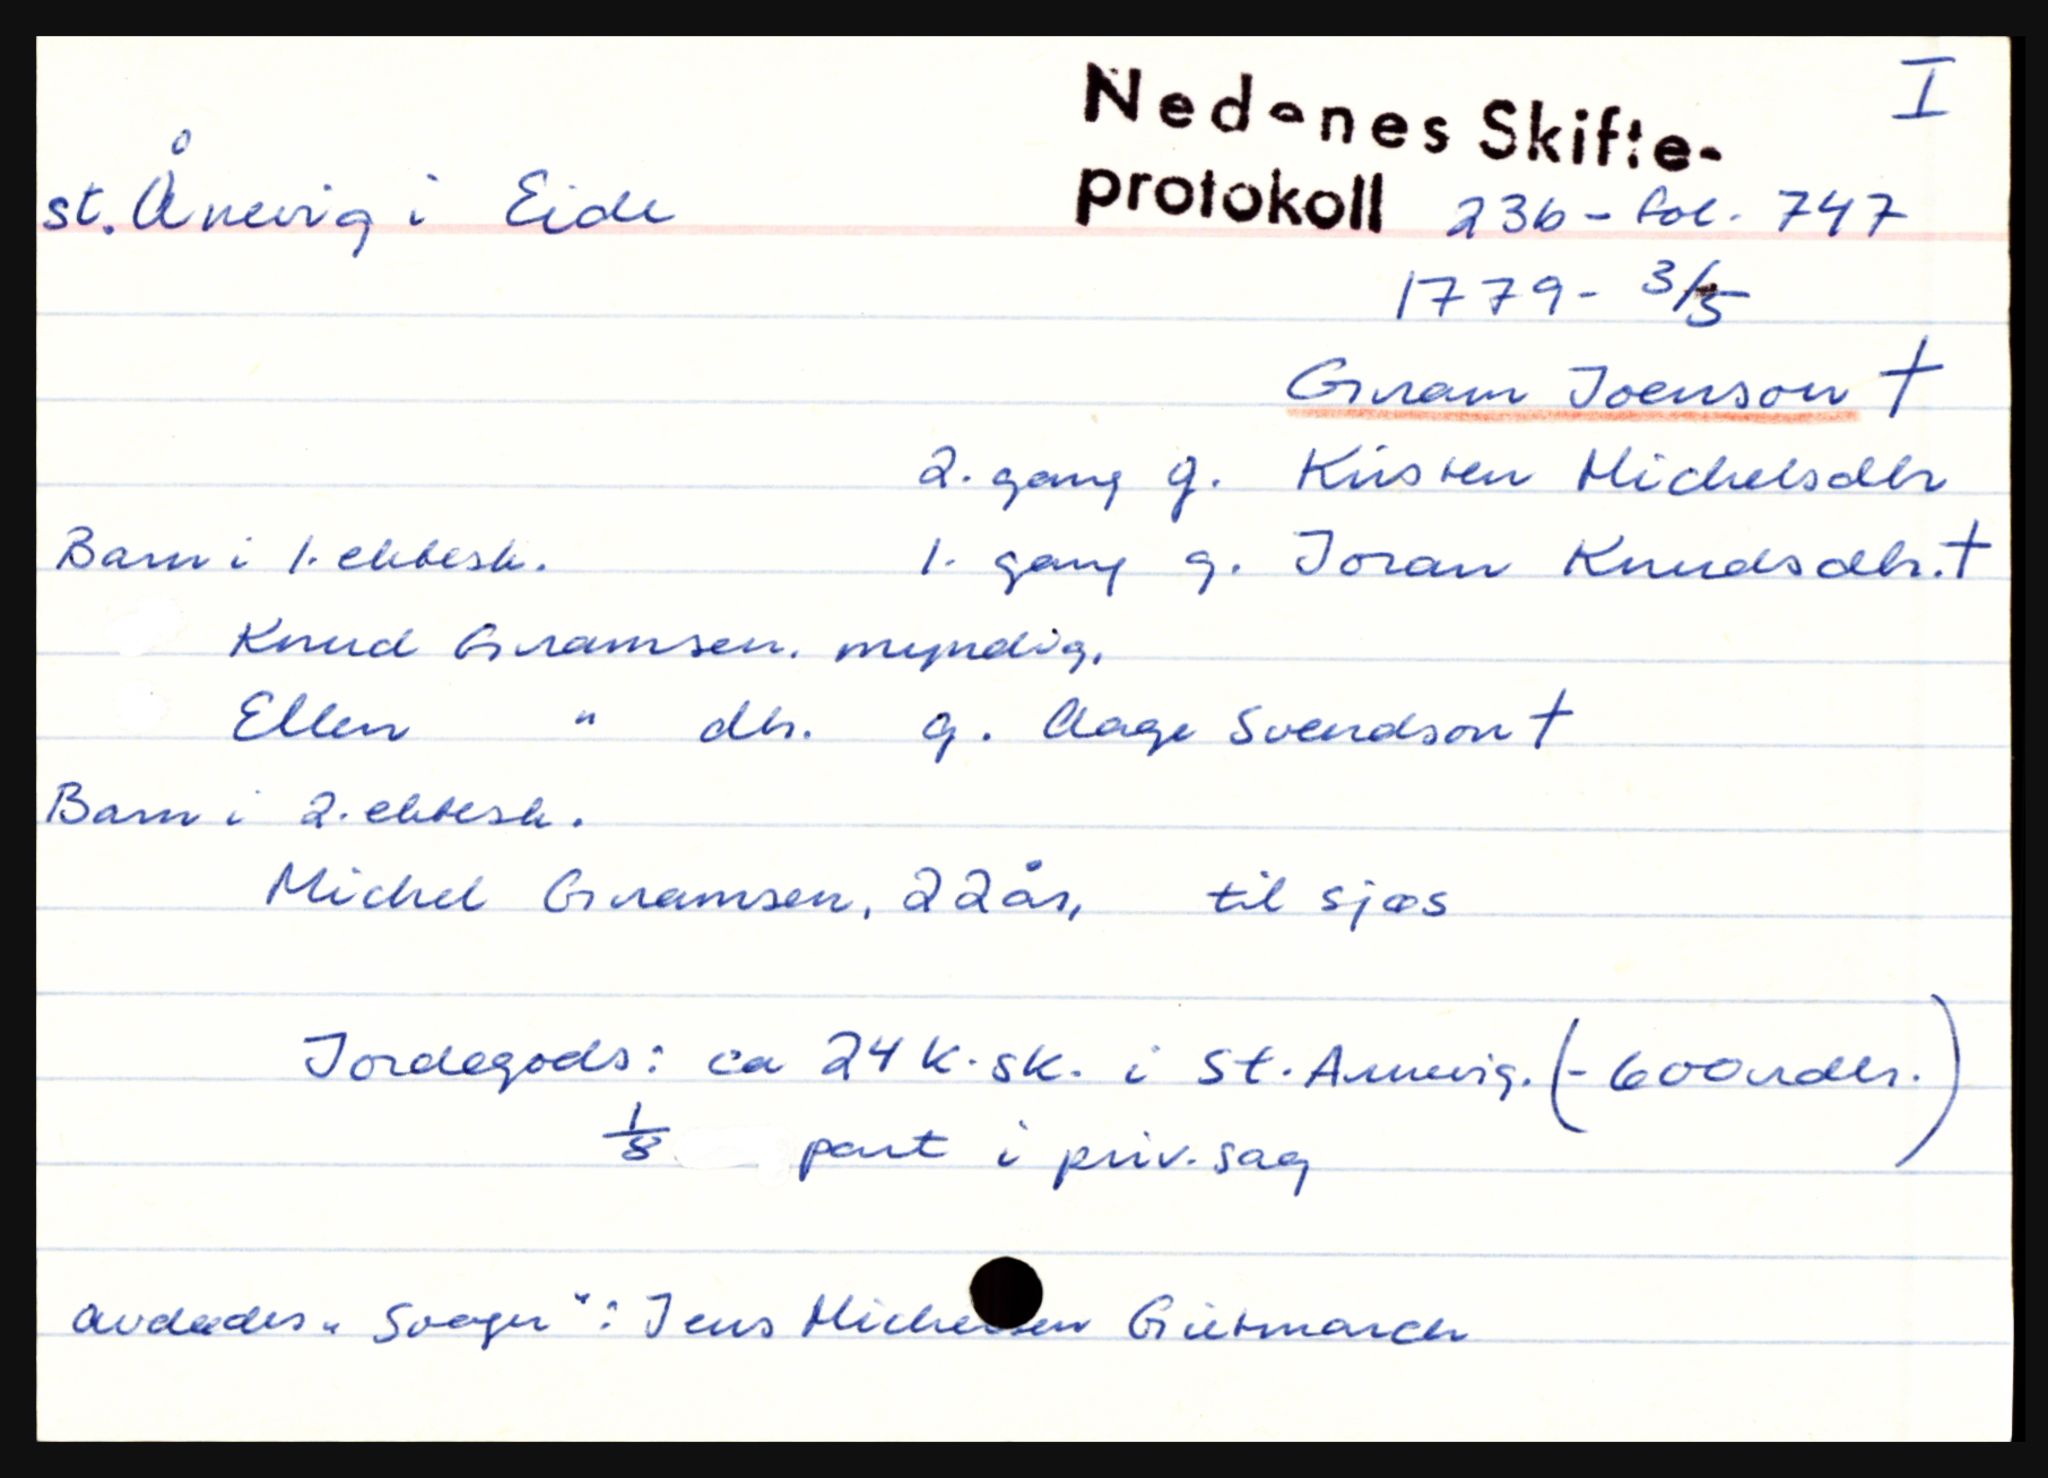 I
Nedenes Skifte-
protokoll 23b - fol. 747
st. Ånevig i Eide
1779 - 3/5
Gunram Joenson †
2. gang g. Kirsten Michelsdtr
Barn i 1. ektesk. 1. gang g. Joran Knudsdtr. †
Knud Gunramsen. myndig.
Ellen " dtr. g. Aage Svendson †
Barn i 2. ektesk.
Michel Gunramsen, 22 år, til sjøs
Jordegods: ca 24 K. sk. i St. Annevig. (- 600 rdlr.)
1/8 part i priv. sag
avdødes "Svoger": Jens Michelsen Gietmarch